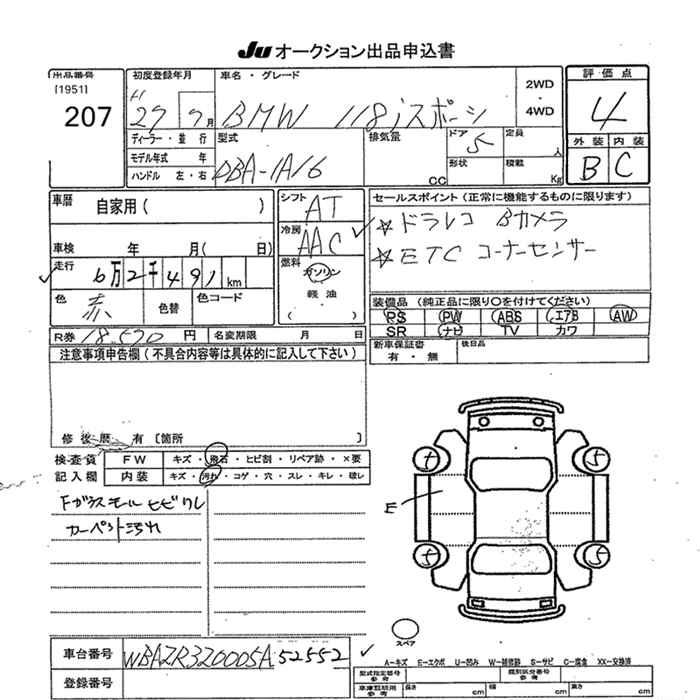 Ju オークション出品申込書
出品番号
[1951]
207
初度登録年月
H
27 7月
車名・グレード
BMW 118iスポーツ
2WD
・
4WD
評価点
4
外装 内装
B C
ディーラー・並行
モデル年式 年
ハンドル 左・右
型式
DBA-1A16
排気量
cc
ドア
5
定員
人
形状
積載
Kg
車歴
自家用( )
車検 年 月( 日)
走行
6万2千491 km
色
赤
色替
色コード
シフト
AT
冷房
AAC
燃料
ガソリン
軽油
( )
セールスポイント(正常に機能するものに限ります)
☆ドラレコ Bカメラ
☆ETC コーナーセンサー
装備品(純正品に限り〇を付けてください)
PS PW ABS エアB AW
SR ナビ TV カワ
R券 18,570 円
名変期限 月 日
新車保証書
有・無
後日品
注意事項申告欄(不具合内容等は具体的に記入して下さい)
修復歴 有 [箇所 ]
検査員
記入欄
FW キズ・飛石・ヒビ割・リペア跡・×要
内装 キズ・汚れ・コゲ・穴・スレ・キレ・破レ
Fガラスモール ヒビワレ
カーペット汚れ
E
5
5
5
5
スペア
車台番号
WBA1R320005A52552
登録番号
A-キズ E-エクボ U-凹み W-補修跡 S-サビ C-腐食 XX-交換済
型式指定番号
参考
類別区分番号
参考
車庫証明用
参考
長さ cm
幅 cm
高さ cm